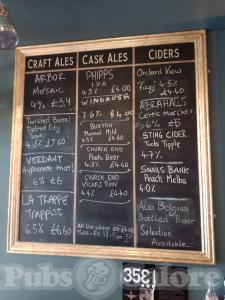 CRAFT ALES
ARBOR
Mosaic
4% £5.4
Twisted Barrel
Detroit City
Sour
4.5% £5.60
VERDANT
that!
6% £6
LA TRAPPE
Trappist
6.5% £6.60
CASK ALES
PHIPPS
IPA
4.3% £4.00
3.6% £4.00
BUXTON
Mild
£4.40
CHURCH END
Pooh Bear
£4.40
CHURCH END
VICARS RUIN
4.4% £4.40
All the above on
CIDERS
Orchard View
£4.40
Celtic Marches
6% £5
STING CIDER
Tuck's Tipple
4.7%
SNAILS BANK
Peach Melba
4% £5.40
Also Belgian
Bottled Beer
Selection
Available...
35£
Pubs Galore